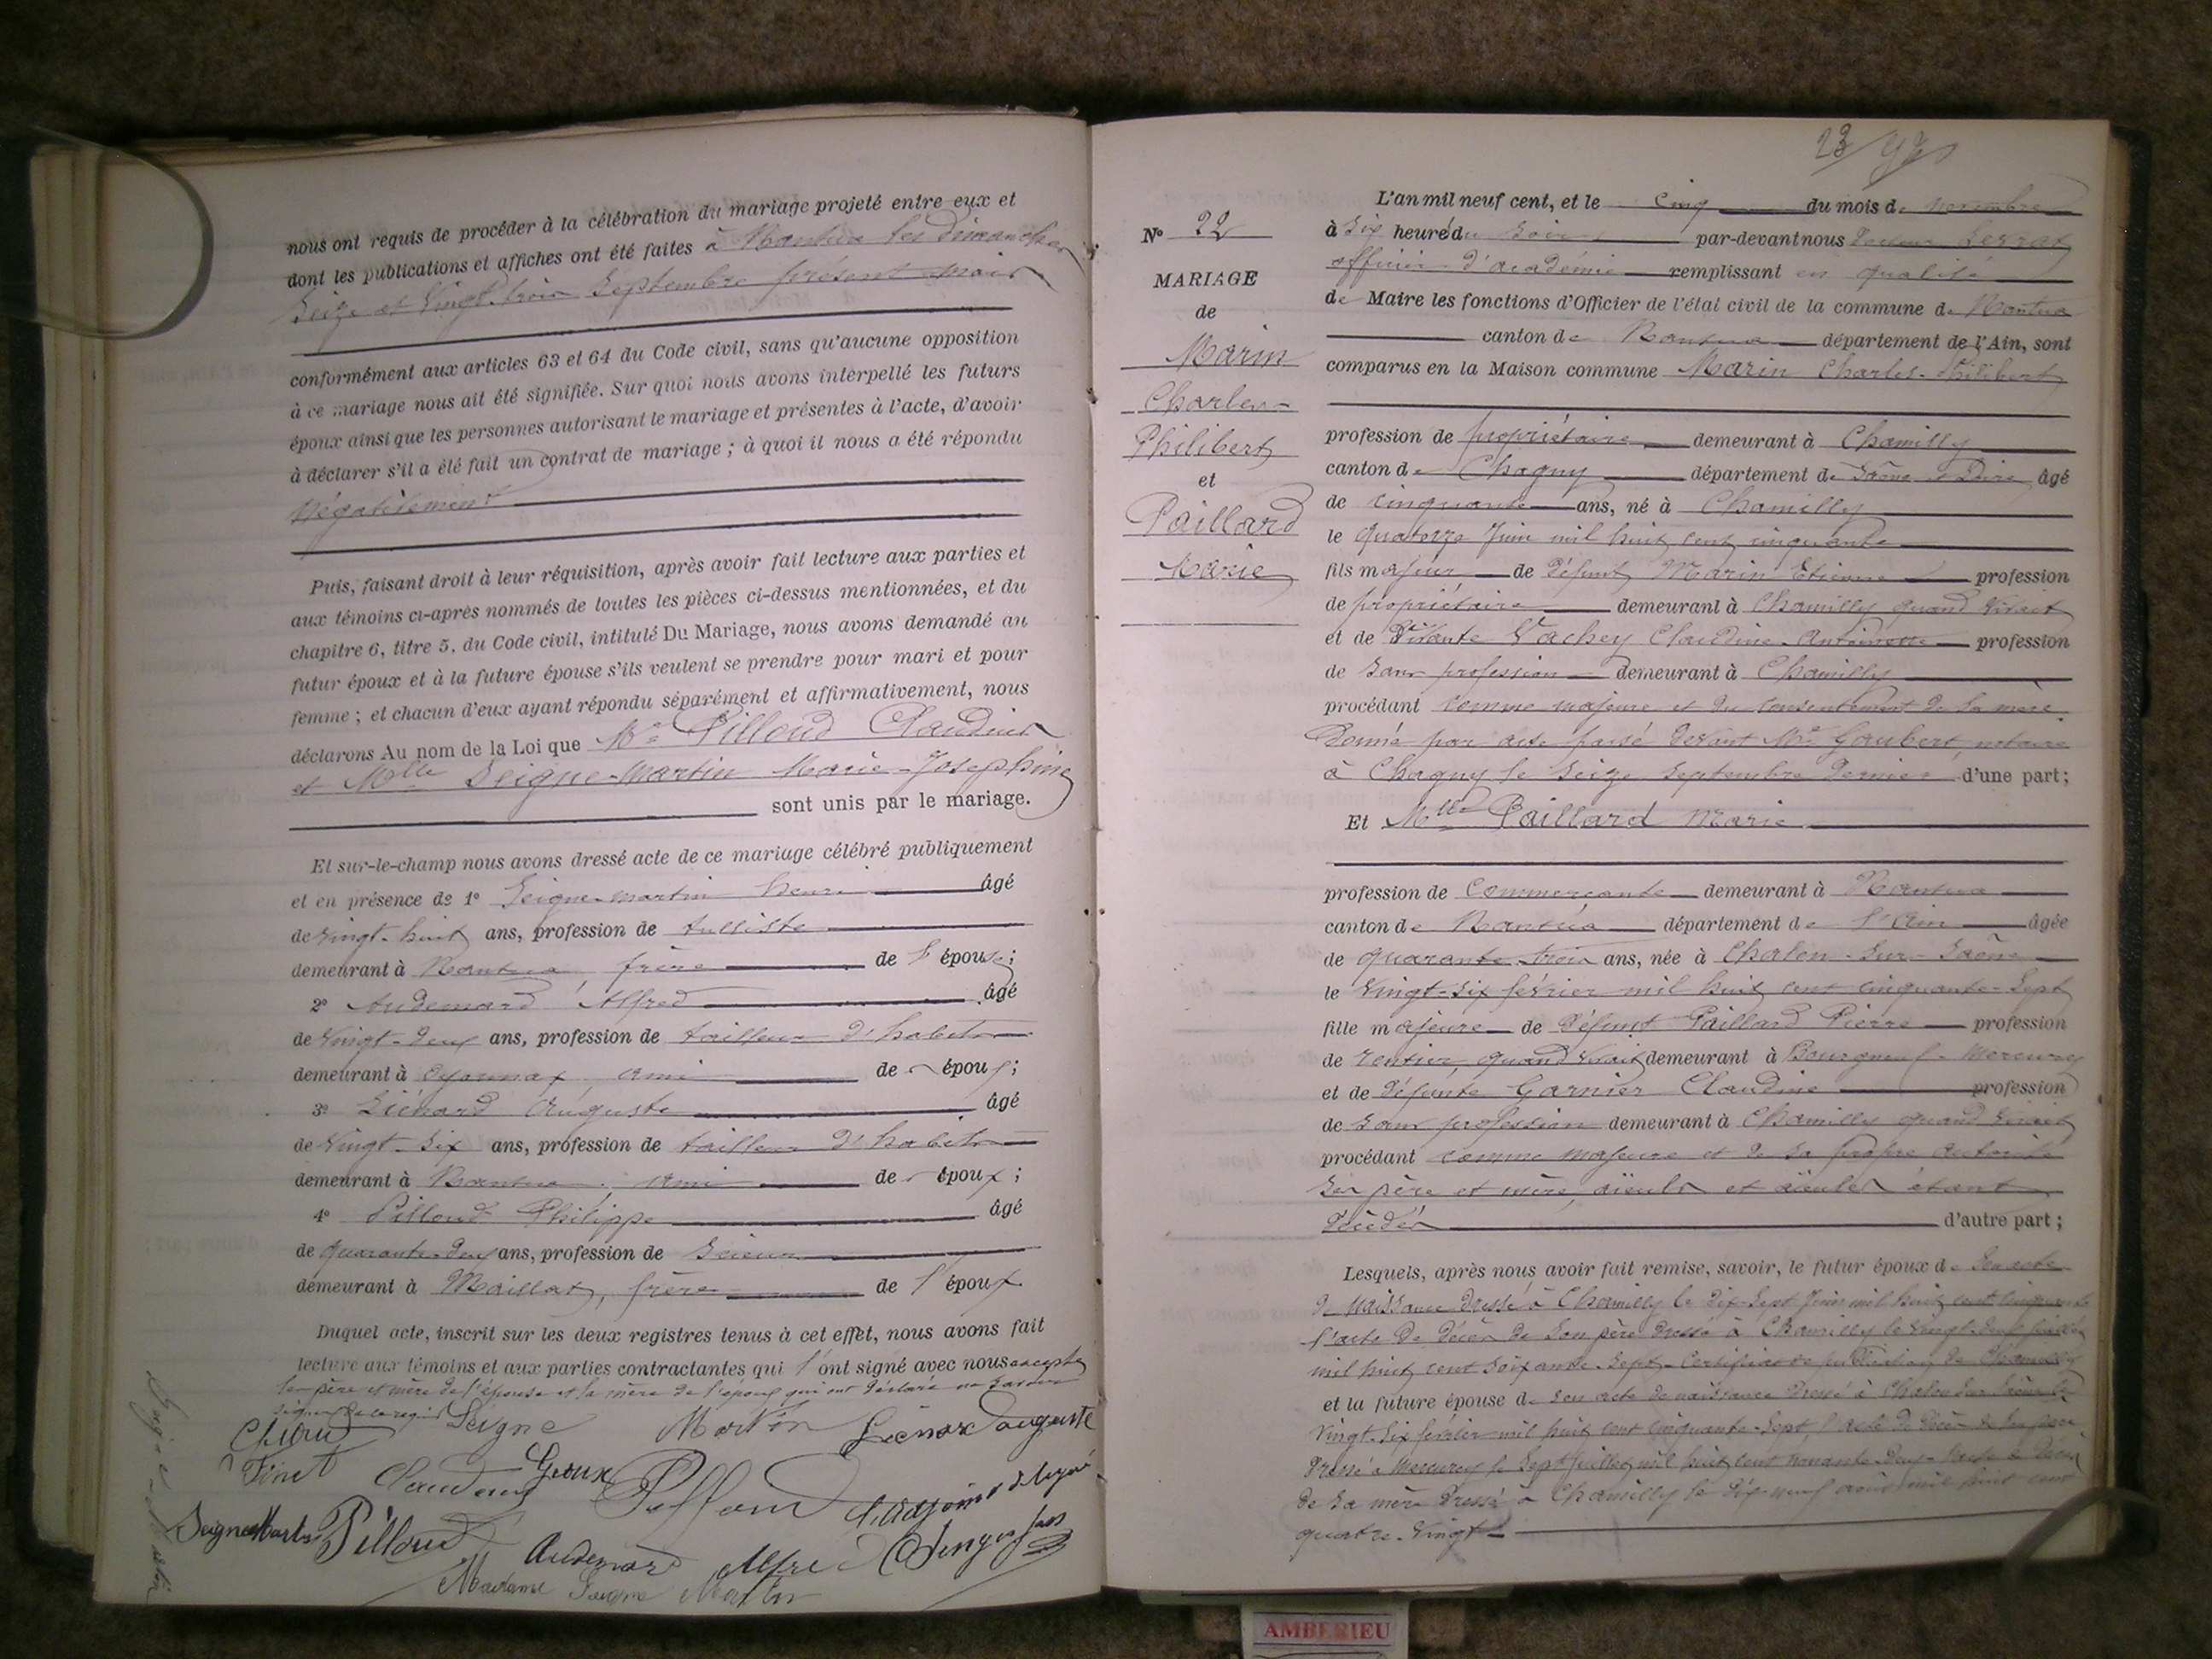 nous ont requis de procéder à la célébration du mariage projeté entre eux et
dont les publications et affiches ont été faites à Nantua les dimanches
Seize et Vingt-trois Septembre présent mois
conformément aux articles 63 et 64 du Code civil, sans qu'aucune opposition
à ce mariage nous ait été signifiée. Sur quoi nous avons interpellé les futurs
époux ainsi que les personnes autorisant le mariage et présentes à l'acte, d'avoir
à déclarer s'il a été fait un contrat de mariage ; à quoi il nous a été répondu
négativement
Puis, faisant droit à leur réquisition, après avoir fait lecture aux parties et
aux témoins ci-après nommés de toutes les pièces ci-dessus mentionnées, et du
chapitre 6, titre 5, du Code civil, intitulé Du Mariage, nous avons demandé au
futur époux et à la future épouse s'ils veulent se prendre pour mari et pour
femme ; et chacun d'eux ayant répondu séparément et affirmativement, nous
déclarons Au nom de la Loi que Mr Pilloud Claudius
et Melle Seigne-Martin Marie-Joséphine
sont unis par le mariage.
Et sur-le-champ nous avons dressé acte de ce mariage célébré publiquement
et en présence de 1° Seigne-Martin henri âgé
de Vingt-huit ans, profession de tulliste
demeurant à Nantua, frère de l'épouse ;
2° Audemard Alfred âgé
de Vingt-deux ans, profession de tailleur d'habits
demeurant à Oyonnax, ami de époux ;
3° Liénard Auguste âgé
de Vingt-Six ans, profession de tailleur d'habits
demeurant à Nantua, ami de époux ;
4° Pilloud Philippe âgé
de quarante-deux ans, profession de Scieur
demeurant à Maillat, frère de l'époux
Duquel acte, inscrit sur les deux registres tenus à cet effet, nous avons fait
lecture aux témoins et aux parties contractantes qui l'ont signé avec nous excepté
les père et mère de l'épouse et la mère de l'époux qui ont déclaré ne Savoir
signer de ce requis
Seigne Martin Liénard auguste
Pinet Claudius Groux Pilloud l'adjoint délégué
Seigne Martin Pilloud Audemard Alfred
Madame Seigne Martin
23
L'an mil neuf cent, et le cinq du mois de novembre
N° 22
à Six heures du Soir par-devant nous
officier d'académie remplissant en qualité
MARIAGE
de Maire les fonctions d'Officier de l'état civil de la commune de Nantua
de
canton de Nantua département de l'Ain, sont
Marin
comparus en la Maison commune Marin Charles-Philibert
Charles
Philibert
profession de propriétaire demeurant à Chamilly
canton de Chagny département de Saône & Loire âgé
et
de cinquante ans, né à Chamilly
Paillard
le quatorze Juin mil huit cent cinquante
Marie
fils majeur de défunt Marin Etienne profession
de propriétaire demeurant à Chamilly quand vivait
et de Vivante Vachey Claudine-Antoinette profession
de Sans profession demeurant à Chamilly
procédant comme majeure et du Consentement de Sa mère
Donné par acte passé devant Me Gaubert, notaire
à Chagny le Seize Septembre dernier d'une part ;
Et Melle Paillard Marie
profession de Commerçante demeurant à Nantua
canton de Nantua département de l'Ain âgée
de quarante-trois ans, née à Chalon-Sur-Saône
le Vingt-Six février mil huit cent cinquante-Sept
fille majeure de défunt Paillard Pierre profession
de rentier, quand vivait demeurant à Bourgneuf-Mercurey
et de défunte Garnier Claudine profession
de Sans profession demeurant à Chamilly quand vivait
procédant comme majeure et de Sa propre autorité
Ses père et mère, aïeuls et aïeules étant
Décédés d'autre part ;
Lesquels, après nous avoir fait remise, savoir, le futur époux de Son acte
de naissance dressé à Chamilly le dix-Sept Juin mil huit cent cinquante
l'acte de décès de Son père dressé à Chamilly le Vingt-deux juillet
mil huit cent Soixante-Sept - Certificat de publication de Chamilly
et la future épouse de Son acte de naissance dressé à Chalon Sur Saône le
Vingt-Six février mil huit cent cinquante-Sept, l'acte de décès de Son père
Dressé à Mercurey le Sept juillet mil huit cent nonante-deux - l'acte de décès
de Sa mère dressé à Chamilly le dix-neuf août mil huit cent
quatre-Vingt
AMBERIEU